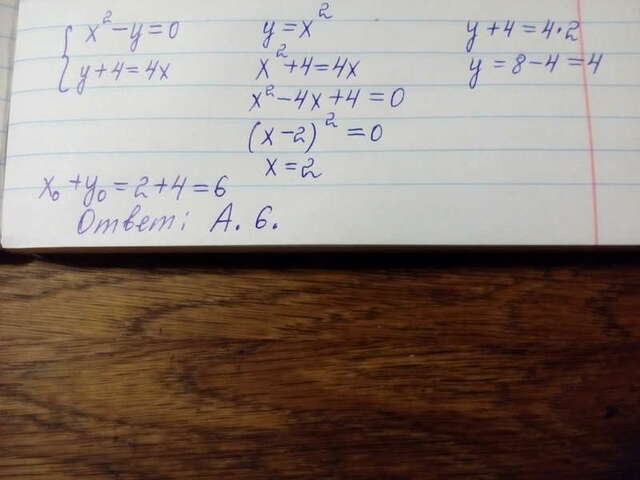 { x² - y = 0
y + 4 = 4x
y = x²
x² + 4 = 4x
x² - 4x + 4 = 0
(x - 2)² = 0
x = 2
y + 4 = 4 · 2
y = 8 - 4 = 4
x₀ + y₀ = 2 + 4 = 6
Ответ: А. 6.